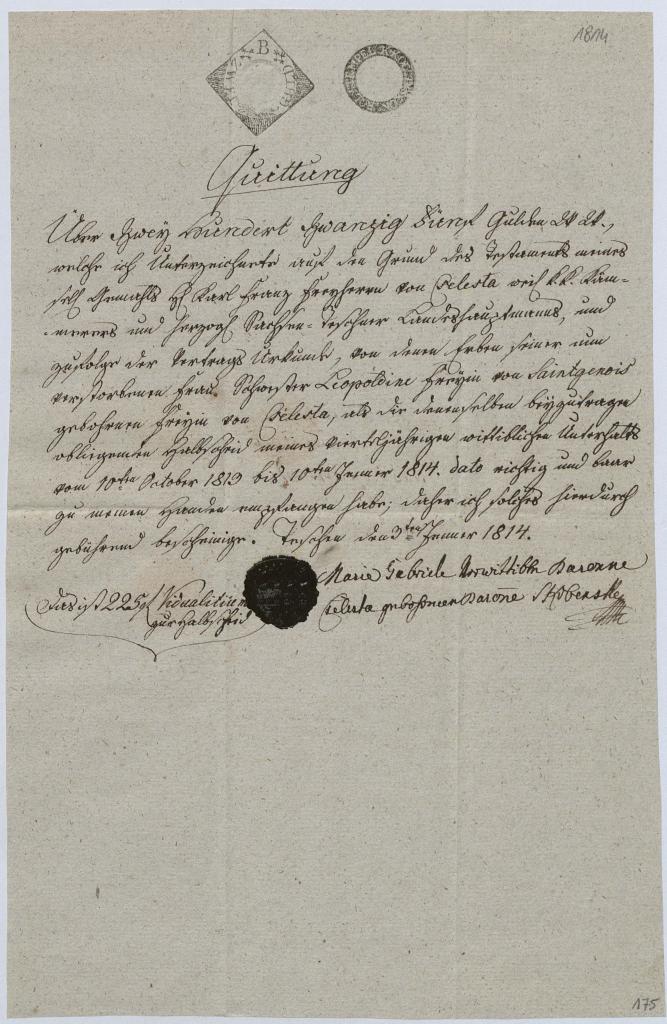 1814
B
Quittung
Über Zwey Hundert Zwanzig Fünf Gulden W. W.,
welche ich Unterzeichnete auf den Grund des Testaments meines
seel. Gemahls H. Karl Franz Freyherrn von Celesta weil. k.k. Käm-
merers und herzogl. Sachsen-Teschner Landeshauptmanns, und
zufolge der Vertrags Urkunde, von denen Erben seiner nun
verstorbenen Frau Schwester Leopoldine Freyin von Saintgenois
gebohrnen Freyin von Celesta, als die denenselben beyzutragen
obliegenden Halbscheid meines vierteljährigen wittiblichen Unterhalts
vom 10ten October 1813 bis 10ten Jenner 1814. dato richtig und baar
zu meinen Handen empfangen habe; daher ich solches hierdurch
gebührend bescheinige. Teschen den 3ten Jenner 1814.
Marie Gabriele Verwittibte Baronne
Celesta gebohrnen Barone
Das ist 225 f Vidualitium
zur Halbscheid
175